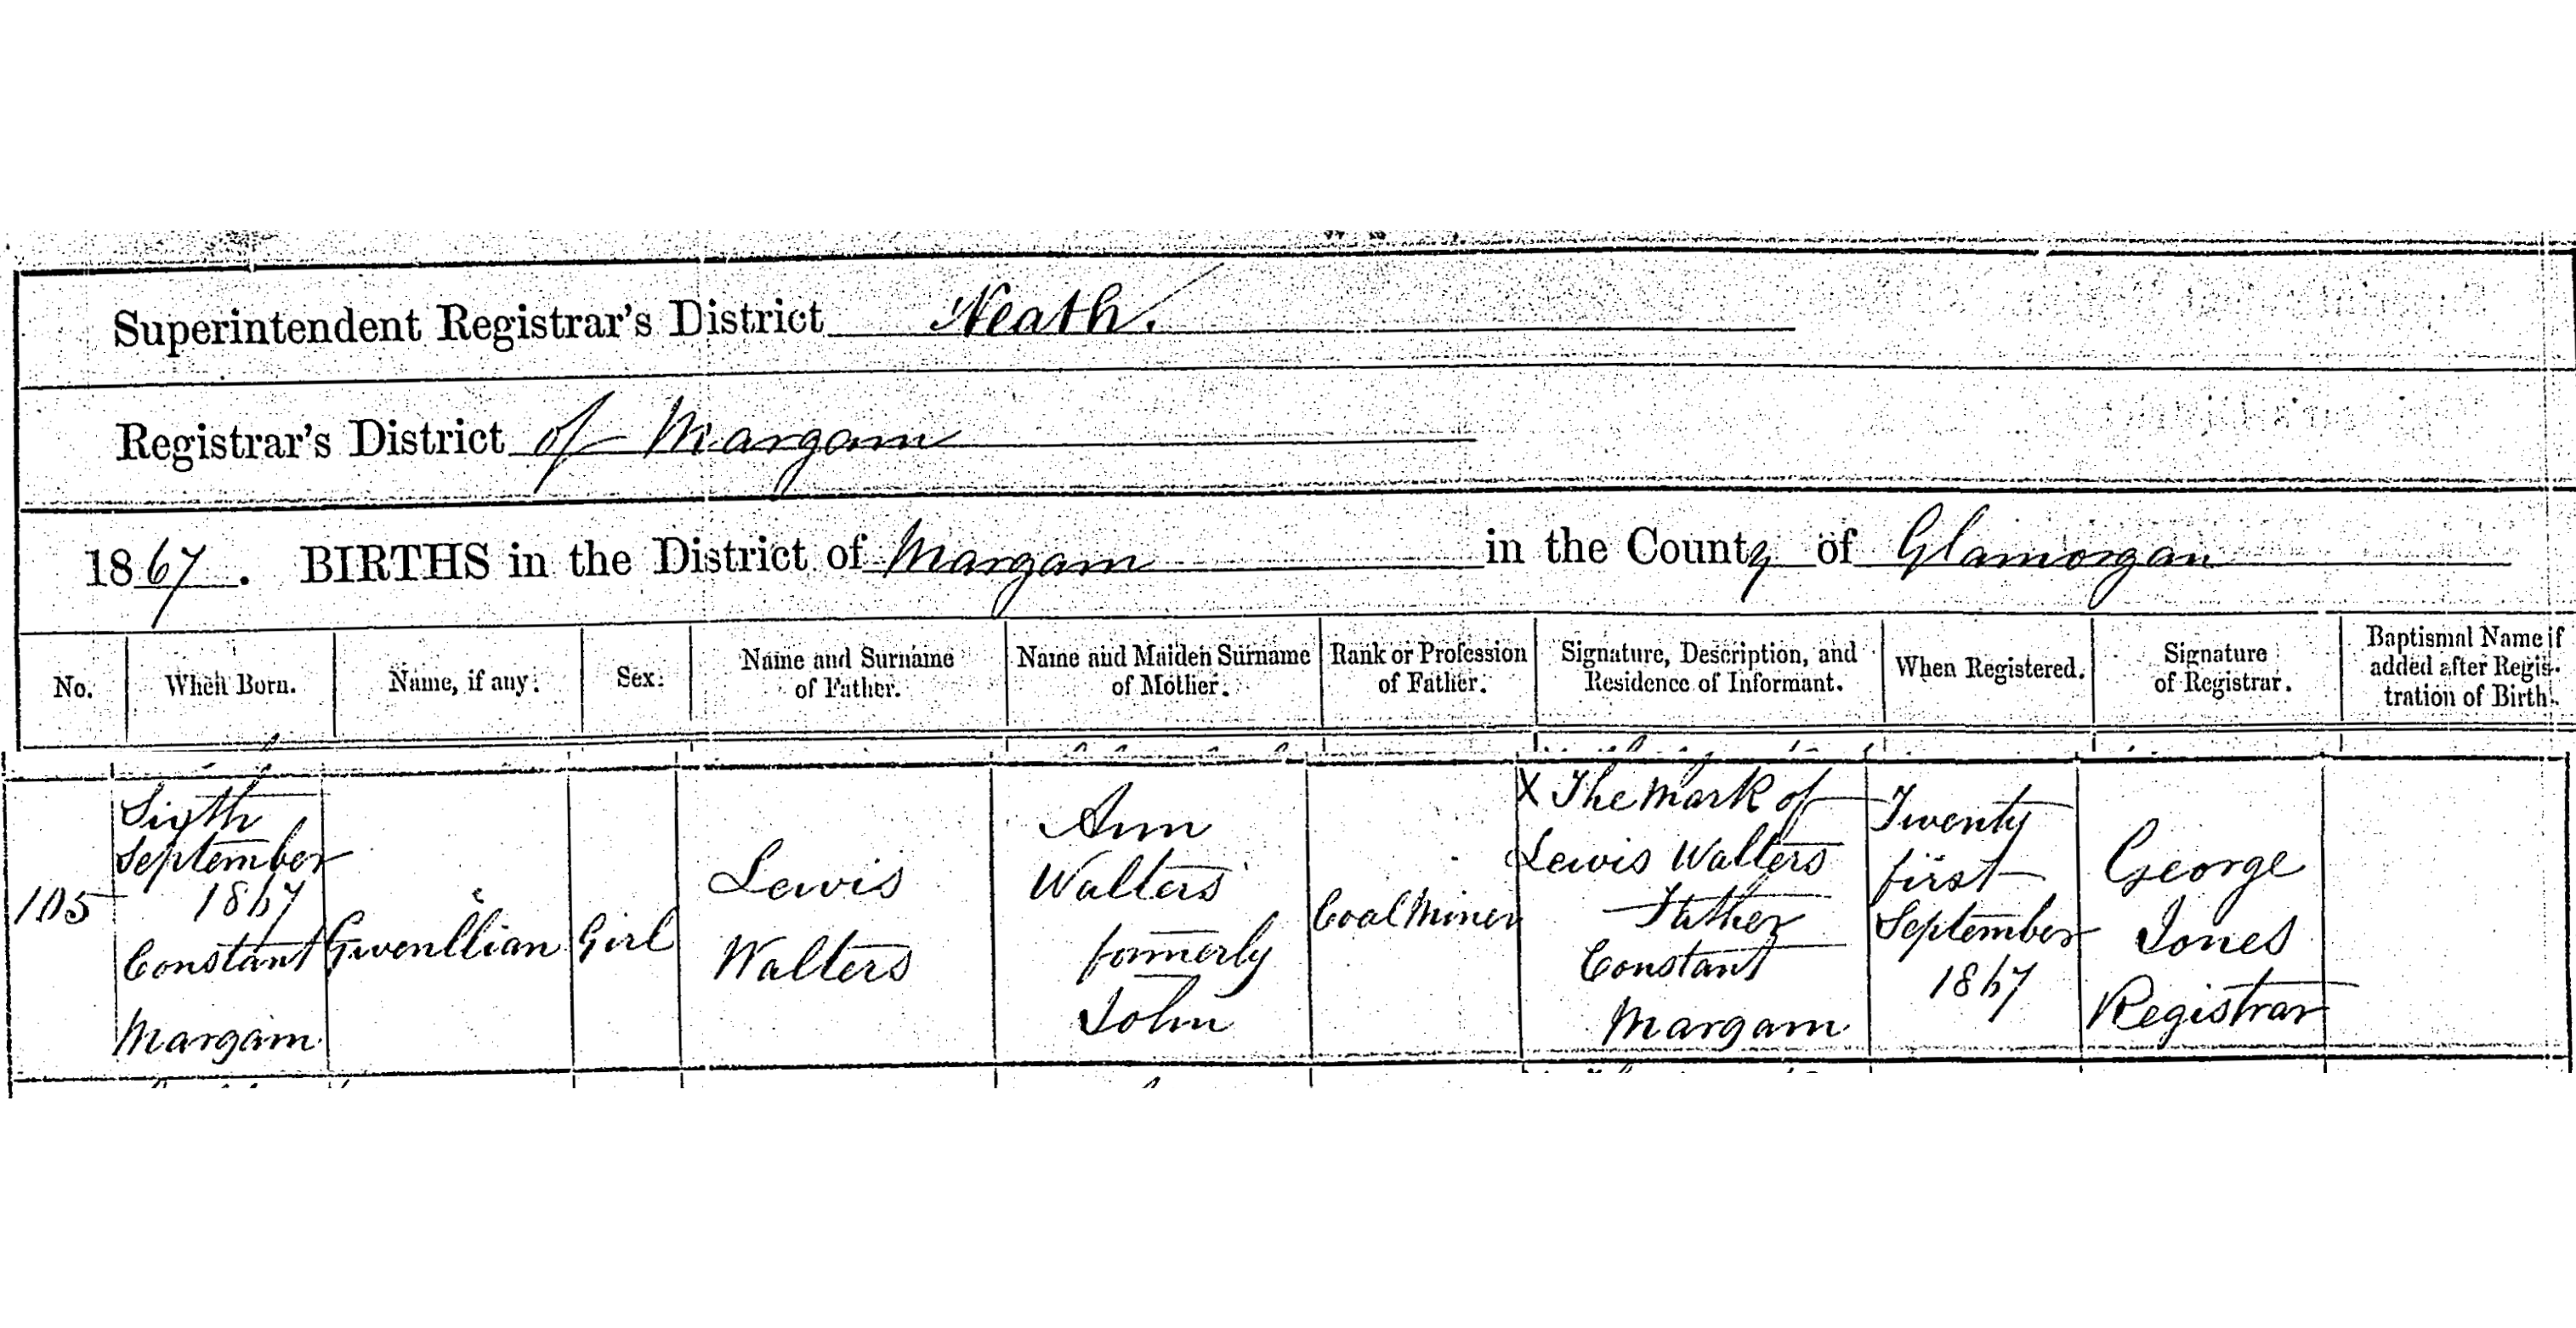 Superintendent Registrar's District Neath.
Registrar's District of Margam
1867. BIRTHS in the District of Margam in the County of Glamorgan
No.
When Born.
Name, if any.
Sex.
Name and Surname
of Father.
Name and Maiden Surname
of Mother.
Rank or Profession
of Father.
Signature, Description, and
Residence of Informant.
When Registered.
Signature
of Registrar.
Baptismal Name if
added after Regis-
tration of Birth.
105
Sixth
September
1867
Constant
Margam
Gwenllian
Girl
Lewis
Walters
Ann
Walters
formerly
John
Coal Miner
X The Mark of
Lewis Walters
Father
Constant
Margam
Twenty
first
September
1867
George
Jones
Registrar